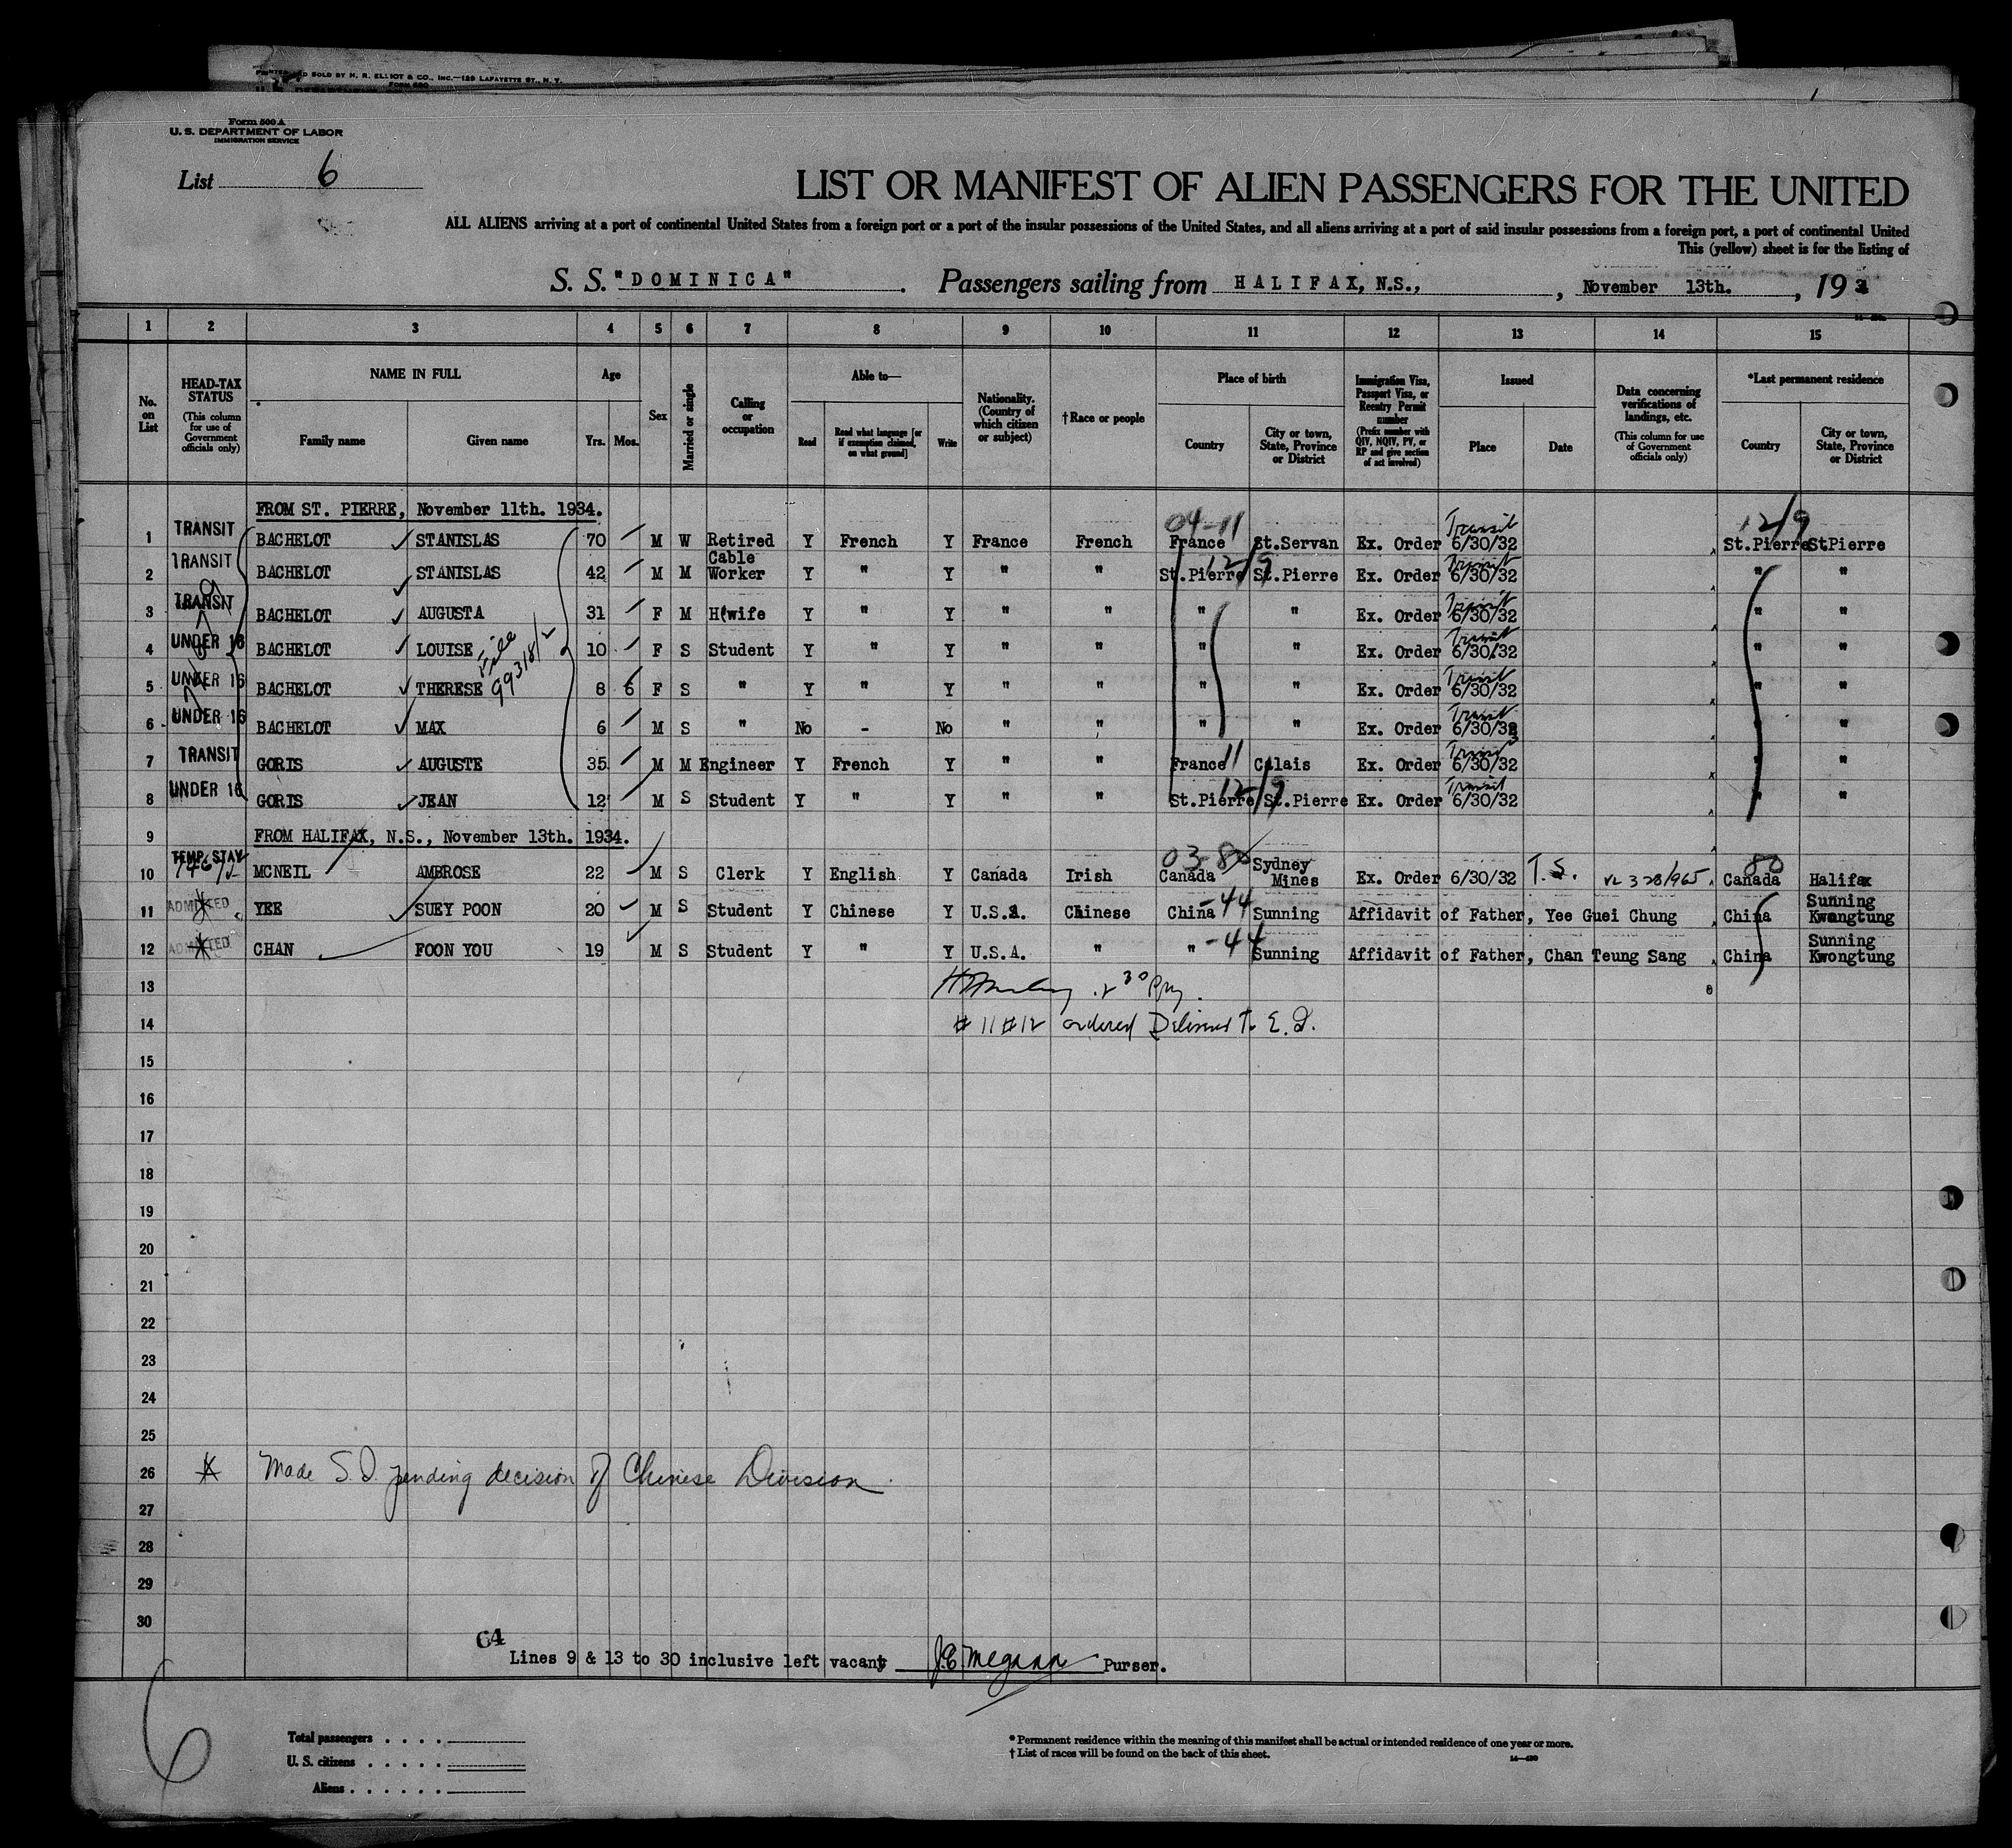 PRINTED AND SOLD BY H. R. ELLIOT & CO., INC.—129 LAFAYETTE ST., N. Y.
FORM 500
Form 500 A
U. S. DEPARTMENT OF LABOR
IMMIGRATION SERVICE
List 6
LIST OR MANIFEST OF ALIEN PASSENGERS FOR THE UNITED
ALL ALIENS arriving at a port of continental United States from a foreign port or a port of the insular possessions of the United States, and all aliens arriving at a port of said insular possessions from a foreign port, a port of continental United
This (yellow) sheet is for the listing of
S. S. "DOMINICA". Passengers sailing from HALIFAX, N.S., , November 13th. , 193
1 2 3 4 5 6 7 8 9 10 11 12 13 14 15
No. on List
HEAD-TAX STATUS (This column for use of Government officials only)
NAME IN FULL Family name Given name
Age Yrs. Mos.
Sex
Married or single
Calling or occupation
Able to— Read Read what language [or if exemption claimed, on what ground] Write
Nationality. (Country of which citizen or subject)
†Race or people
Place of birth Country City or town, State, Province or District
Immigration Visa, Passport Visa, or Reentry Permit number (Prefix number with QIV, NQIV, PV, or RP and give section of act involved)
Issued Place Date
Data concerning verifications of landings, etc. (This column for use of Government officials only)
*Last permanent residence Country City or town, State, Province or District
FROM ST. PIERRE, November 11th. 1934.
1 TRANSIT BACHELOT STANISLAS 70 M W Retired Y French Y France French 04-11 France St.Servan Ex. Order Transit 6/30/32 12/9 St.Pierre StPierre
2 TRANSIT BACHELOT STANISLAS 42 M M Cable Worker Y " Y " " 12/9 St.Pierre St.Pierre Ex. Order Transit 6/30/32 " "
3 TRANSIT BACHELOT AUGUSTA 31 F M H(wife Y " Y " " " " Ex. Order Transit 6/30/32 " "
4 UNDER 16 BACHELOT LOUISE 10 F S Student Y " Y " " " " Ex. Order Transit 6/30/32 " "
File 99318/2
5 UNDER 16 BACHELOT THERESE 8 6 F S " Y " Y " " " " Ex. Order Transit 6/30/32 " "
6 UNDER 16 BACHELOT MAX 6 M S " No - No " " " " Ex. Order Transit 6/30/32 " "
7 TRANSIT GORIS AUGUSTE 35 M M Engineer Y French Y " " France 11 Calais Ex. Order Transit 6/30/32 " "
8 UNDER 16 GORIS JEAN 12 M S Student Y " Y " " 12/9 St.Pierre St.Pierre Ex. Order Transit 6/30/32 " "
9 FROM HALIFAX, N.S., November 13th. 1934.
10 TEMP. STAY MCNEIL AMBROSE 22 M S Clerk Y English Y Canada Irish 03-80 Canada Sydney Mines Ex. Order 6/30/32 T.S. 80 Canada Halifax
11 ADMITTED YEE SUEY POON 20 M S Student Y Chinese Y U.S.A. Chinese China -44 Sunning Affidavit of Father, Yee Guei Chung China Sunning Kwangtung
12 ADMITTED CHAN FOON YOU 19 M S Student Y " Y U.S.A. " " -44 Sunning Affidavit of Father, Chan Teung Sang China Sunning Kwongtung
13
14 # 11 # 12 ordered Delivered To E. I.
15
16
17
18
19
20
21
22
23
24
25
26 Made S.I. pending decision of Chinese Division
27
28
29
30
64
Lines 9 & 13 to 30 inclusive left vacant J.E. Megann Purser.
6
Total passengers . . . .
U. S. citizens . . . . . .
Aliens . . . . . .
* Permanent residence within the meaning of this manifest shall be actual or intended residence of one year or more.
† List of races will be found on the back of this sheet.